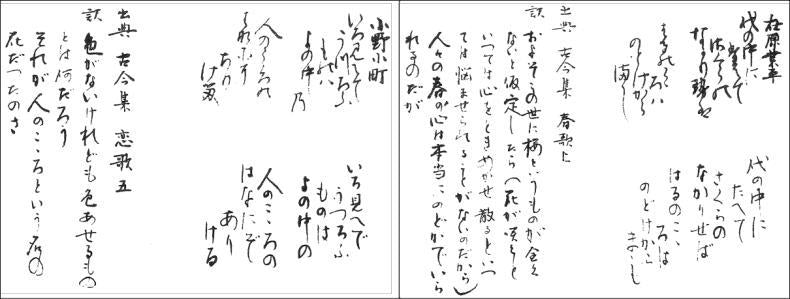 在原業平
代の中に
たへて
さくらの
なかりせば
はるのこゝ
ろは
のどけから
まし
代の中に
たへて
さくらの
なかりせば
はるのこゝ
ろは
のどけから
ましも
出典 古今集 春歌上
訳 およそこの世に桜というものが全く
ないと仮定したら(花が咲くと
いっては心をときめかせ散るといっ
ては悩ませられることがないのだから)
人々の春の心は本当にのどかでいら
れるのだが
小野小町
いろ見えで
うつろふ
ものは
よの中乃
人のこころの
花にぞ
あり
ける
いろ見へで
うつろふ
ものは
よの中の
人のこころの
はなにぞ
あり
ける
出典 古今集 恋歌五
訳 色がないけれども色あせるもの
とは何だろう
それが人のこころという名の
花だったのさ